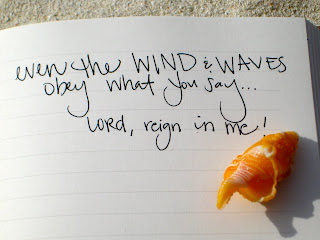 even the WIND & WAVES
obey what you say...
LORD, reign in me!